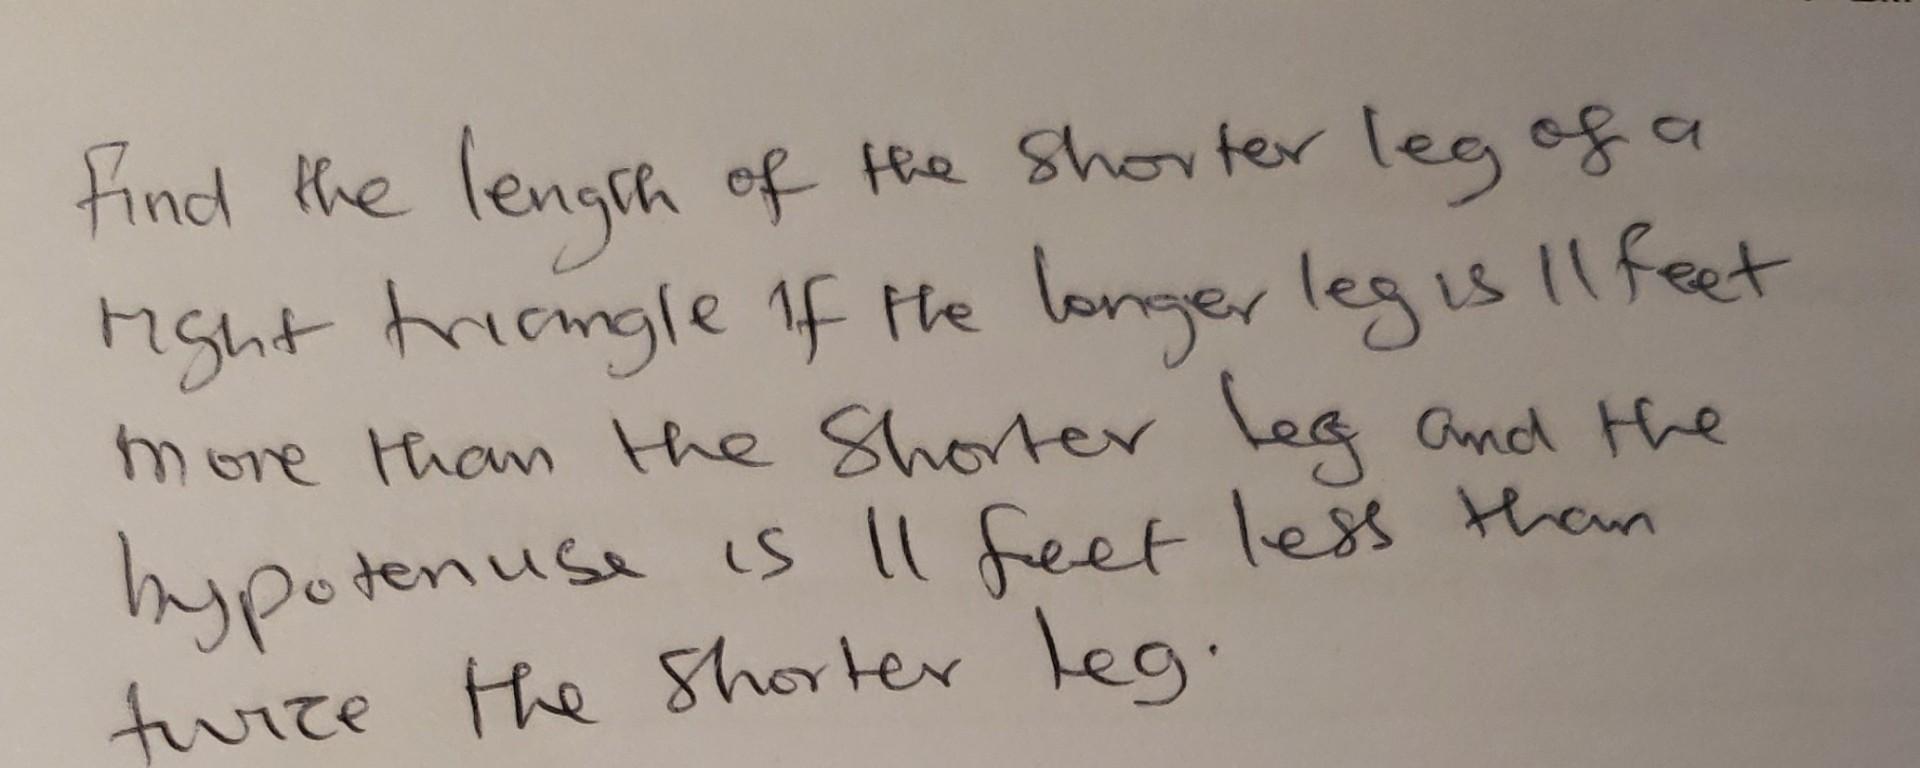 Find the length of the shorter leg of a
right triangle if the longer leg is 11 feet
more than the shorter leg and the
hypotenuse is 11 feet less than
twice the shorter leg.